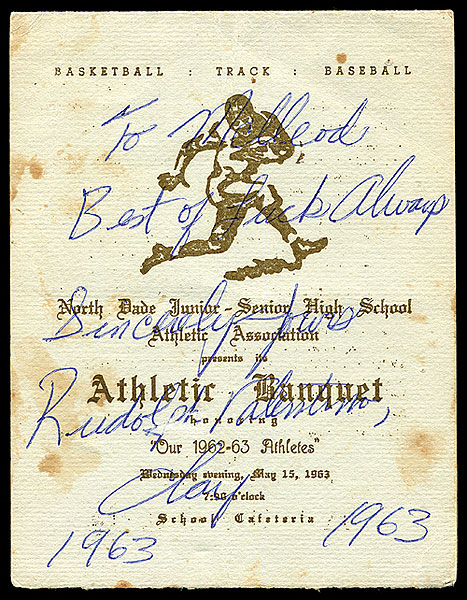 BASKETBALL : TRACK : BASEBALL
To
Best of Luck Always
North Dade Junior - Senior High School
Sincerely yours
Athletic Association
presents its
Athletic Banquet
Rudolph Valentino,
honoring
"Our 1962-63 Athletes"
Wednesday evening, May 15, 1963
Clay
7:30 o'clock
School Cafeteria
1963
1963